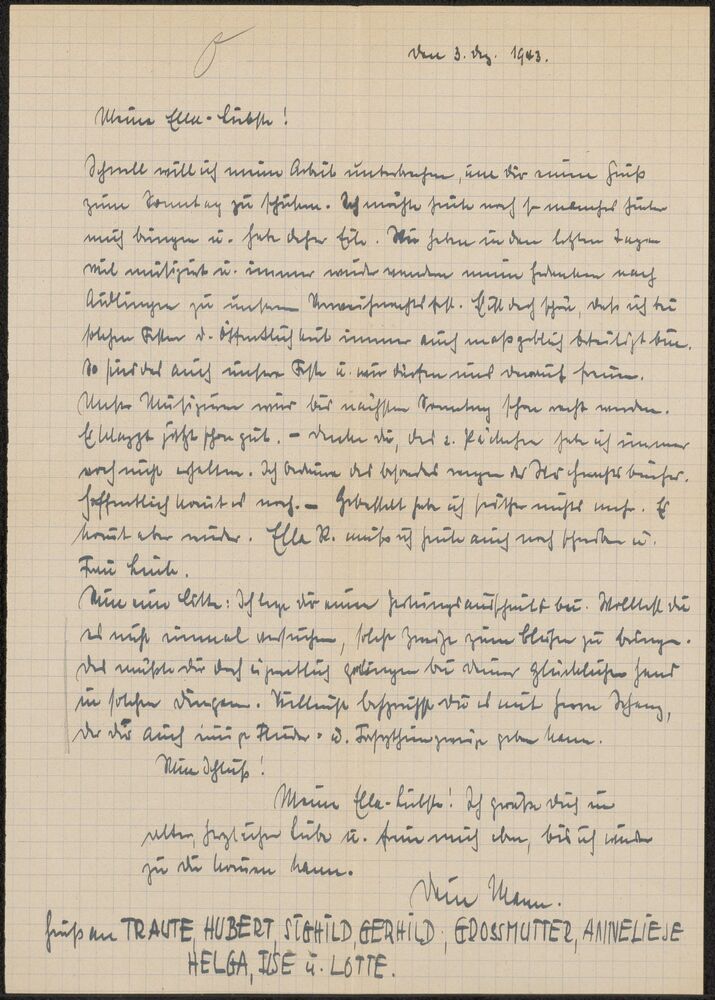 Den 3. Dez. 1943.
Meine Ella-Liebste!
Schnell will ich meine Arbeit unterbrechen, um Dir einen Gruß
zum Sonntag zu schicken. Ich möchte heute noch so manches hinter
mich bringen u. habe daher Eile. Wir haben in den letzten Tagen
viel musiziert u. immer wieder wandern meine Gedanken nach
zu unserem Vorweihnachtsfest. Es ist doch schön, daß ich bei
solchen Festen d. Öffentlichkeit immer auch maßgeblich beteiligt bin.
So sind das auch unsere Feste u. wir dürfen uns darauf freuen.
Unser Musizieren wird bis nächsten Sonntag schon recht werden.
Es klappt jetzt schon gut. – Denke Du, das 2. Päckchen habe ich immer
noch nicht erhalten. Ich bedaure das besonders wegen der
Hoffentlich kommt es noch. – Gebastelt habe ich seither nichts mehr. Es
kommt aber wieder. Ella R. muß ich heute auch noch schreiben u.
Frau
Nun eine Bitte: Ich lege Dir einen Zeitungsausschnitt bei. Wolltest Du
es nicht einmal versuchen, solche Zweige zum Blühen zu bringen.
Das müßte Dir doch eigentlich gelingen bei Deiner glücklichen Hand
in solchen Dingen. Vielleicht besprichst Du es mit Herrn
der Dir auch einige Flieder- u. Forsythienzweige geben kann.
Nun Schluß!
Meine Ella-Liebste! Ich grüße Dich in
alter, herzlicher Liebe u. freue mich eben, bis ich wieder
zu Dir kommen kann.
Dein Mann.
Gruß an TRAUTE, HUBERT, SIGHILD, GERHILD, GROSSMUTTER, ANNELIESE
HELGA, ILSE u. LOTTE.